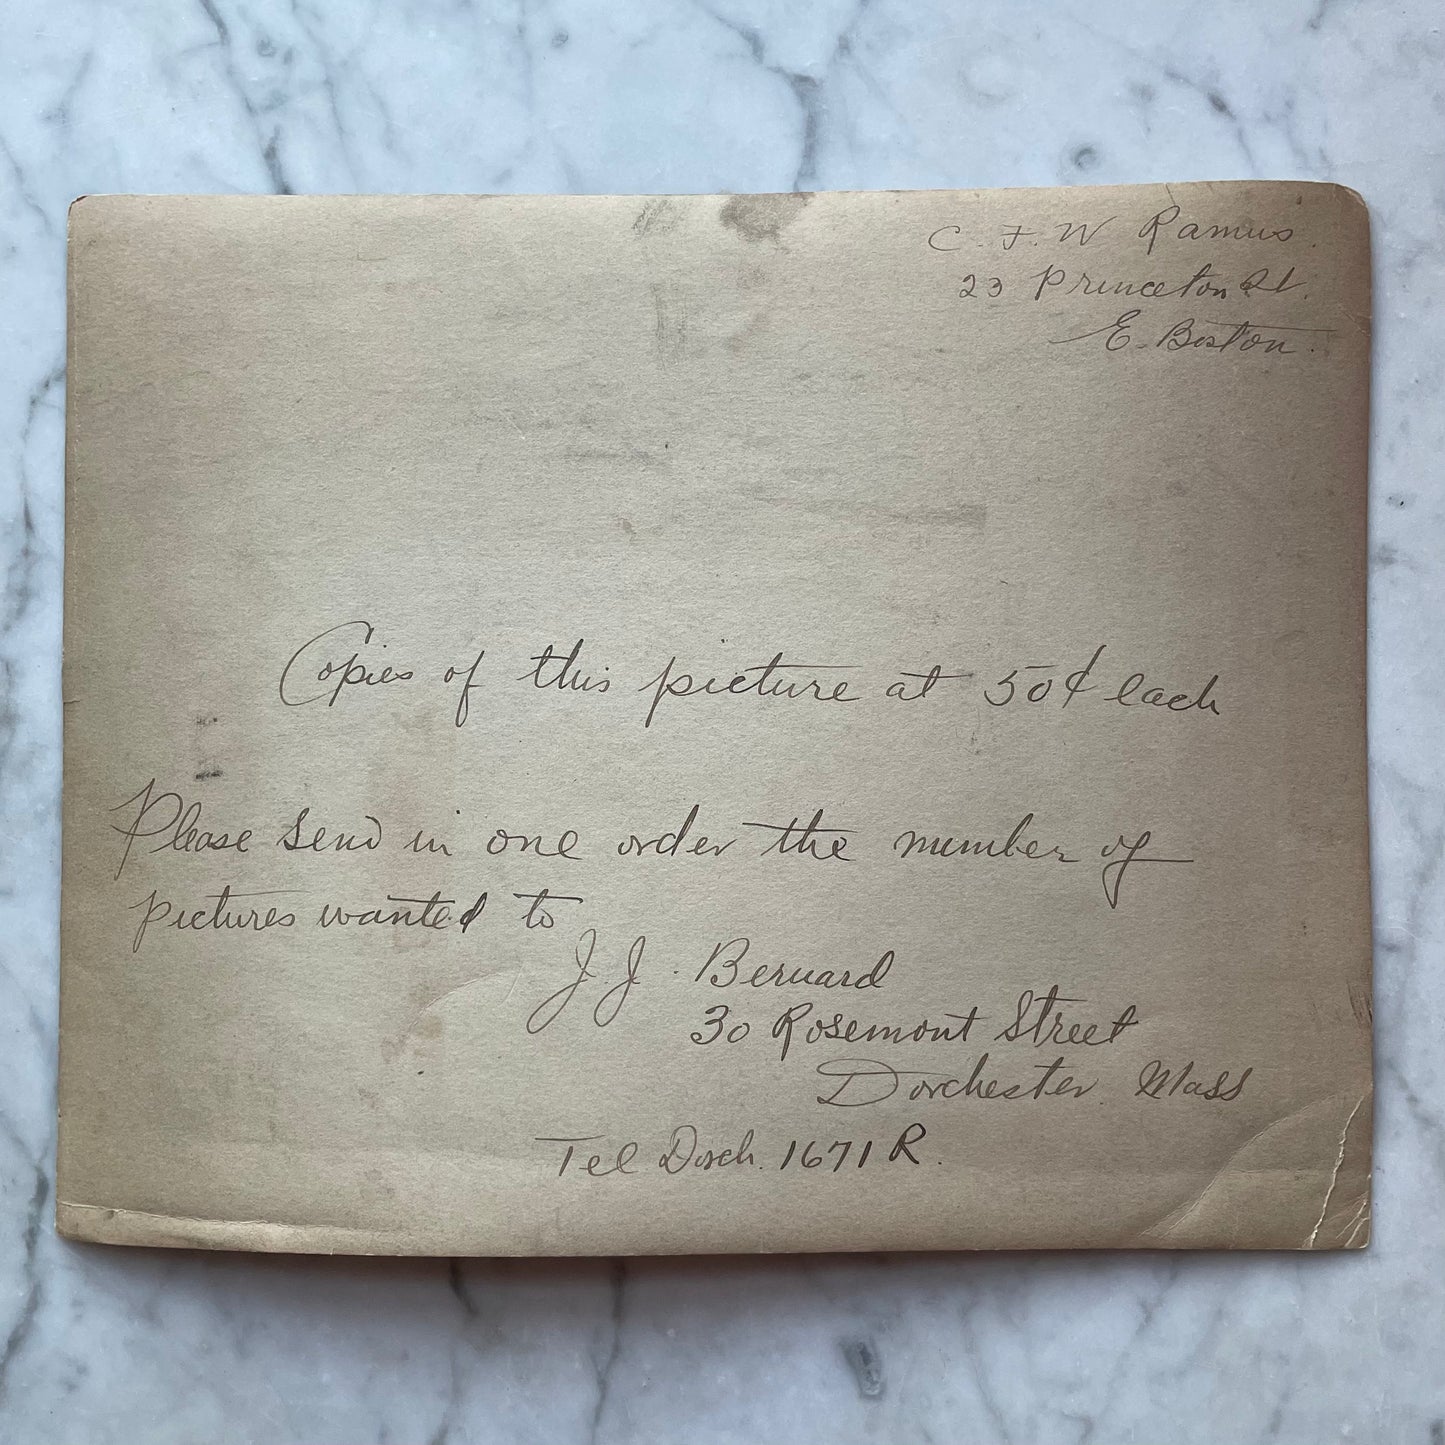 C. F. W Ramus.
23 Princeton St.
E. Boston.
Copies of this picture at 50¢ each
Please send in one order the number of
pictures wanted to
J J. Bernard
30 Rosemont Street
Dorchester. Mass
Tel Dorch. 1671 R.